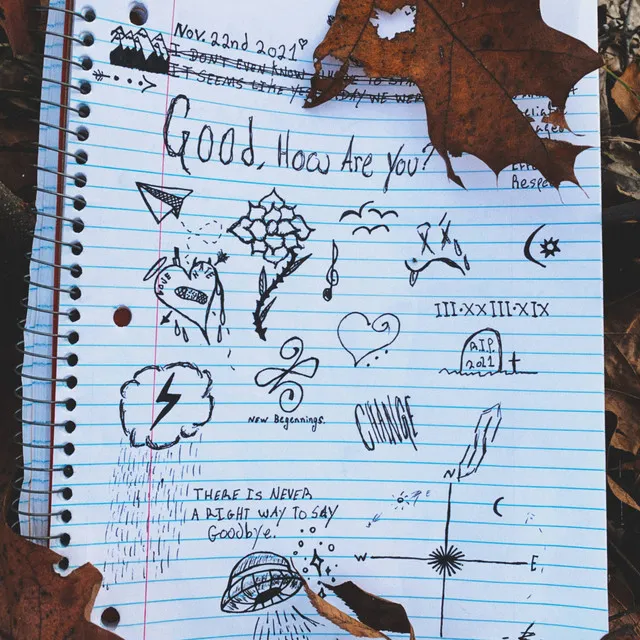 Nov. 22nd 2021
I DON'T EVEN KNOW
IT SEEMS LIKE YE WE WER
Respe
Good, How Are You?
III·XXIII·XIX
R.I.P.
2021
New Begennings.
CHANGE
N
THERE IS NEVER
A RIGHT WAY TO SAY
Goodbye.
W E